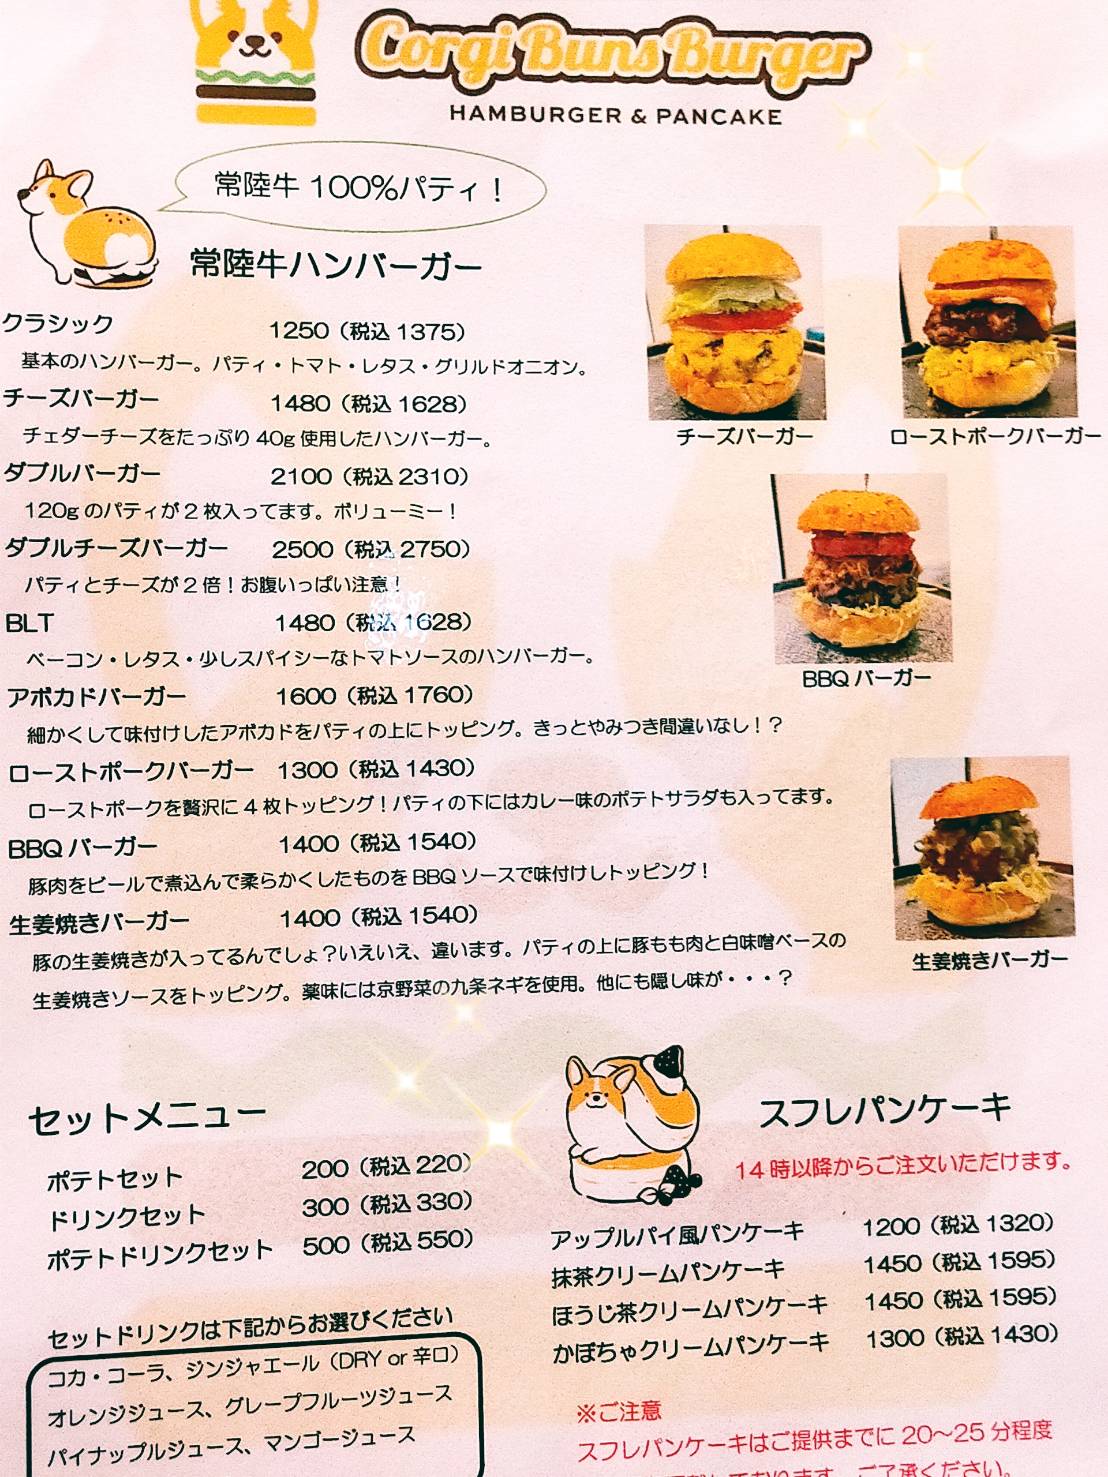 Corgi Buns Burger
HAMBURGER & PANCAKE
常陸牛 100%パティ！
常陸牛ハンバーガー
クラシック 1250（税込 1375）
基本のハンバーガー。パティ・トマト・レタス・グリルドオニオン。
チーズバーガー 1480（税込 1628）
チェダーチーズをたっぷり 40g 使用したハンバーガー。
ダブルバーガー 2100（税込 2310）
120g のパティが 2 枚入ってます。ボリューミー！
ダブルチーズバーガー 2500（税込 2750）
パティとチーズが 2 倍！お腹いっぱい注意！
BLT 1480（税込 1628）
ベーコン・レタス・少しスパイシーなトマトソースのハンバーガー。
アボカドバーガー 1600（税込 1760）
細かくして味付けしたアボカドをパティの上にトッピング。きっとやみつき間違いなし！？
ローストポークバーガー 1300（税込 1430）
ローストポークを贅沢に 4 枚トッピング！パティの下にはカレー味のポテトサラダも入ってます。
BBQ バーガー 1400（税込 1540）
豚肉をビールで煮込んで柔らかくしたものを BBQ ソースで味付けしトッピング！
生姜焼きバーガー 1400（税込 1540）
豚の生姜焼きが入ってるんでしょ？いえいえ、違います。パティの上に豚もも肉と白味噌ベースの
生姜焼きソースをトッピング。薬味には京野菜の九条ネギを使用。他にも隠し味が・・・？
チーズバーガー
ローストポークバーガー
BBQ バーガー
生姜焼きバーガー
セットメニュー
ポテトセット 200（税込 220）
ドリンクセット 300（税込 330）
ポテトドリンクセット 500（税込 550）
セットドリンクは下記からお選びください
コカ・コーラ、ジンジャエール（DRY or 辛口）
オレンジジュース、グレープフルーツジュース
パイナップルジュース、マンゴージュース
スフレパンケーキ
14 時以降からご注文いただけます。
アップルパイ風パンケーキ 1200（税込 1320）
抹茶クリームパンケーキ 1450（税込 1595）
ほうじ茶クリームパンケーキ 1450（税込 1595）
かぼちゃクリームパンケーキ 1300（税込 1430）
※ご注意
スフレパンケーキはご提供までに 20～25 分程度
ております。ご了承ください。